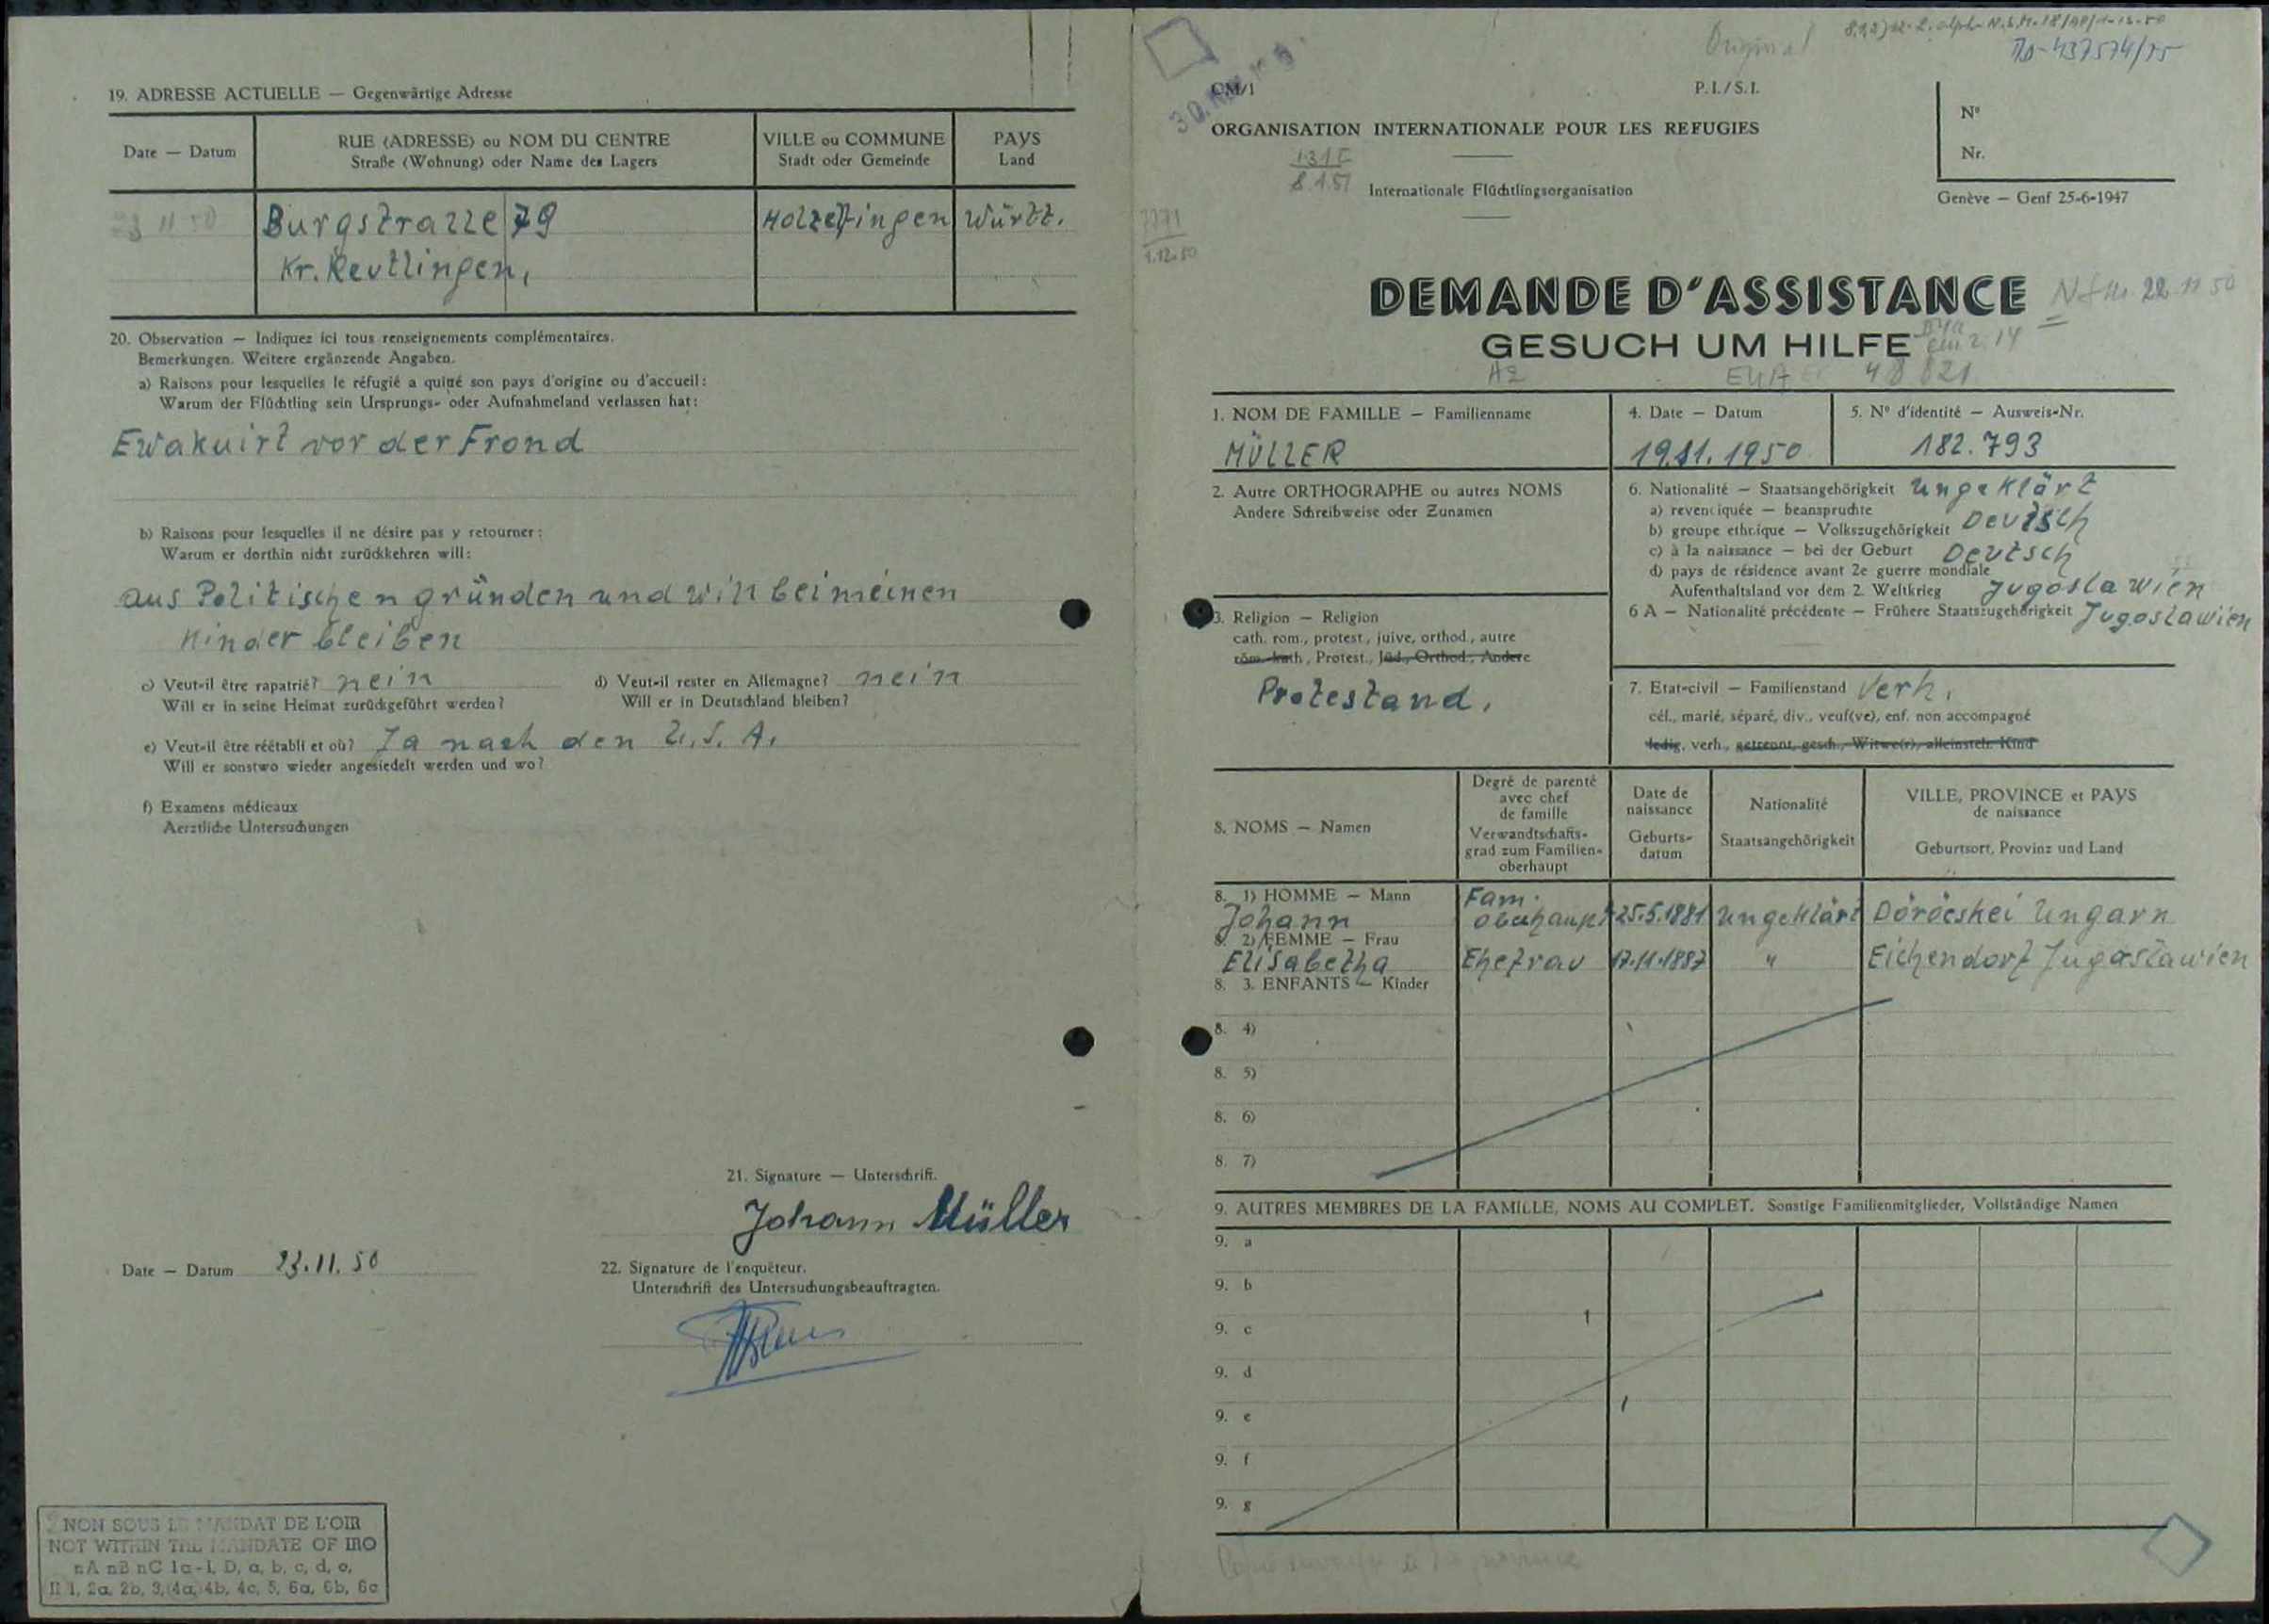 19. ADRESSE ACTUELLE — Gegenwärtige Adresse
Date — Datum
RUE (ADRESSE) ou NOM DU CENTRE
Straße (Wohnung) oder Name des Lagers
VILLE ou COMMUNE
Stadt oder Gemeinde
PAYS
Land
23 11 50 Burgstrazze 79 Holzelfingen Württ.
Kr. Reutlingen,
20. Observation — Indiquez ici tous renseignements complémentaires.
Bemerkungen. Weitere ergänzende Angaben.
a) Raisons pour lesquelles le réfugié a quitté son pays d'origine ou d'accueil:
Warum der Flüchtling sein Ursprungs- oder Aufnahmeland verlassen hat:
Ewakuirt vor der Frond
b) Raisons pour lesquelles il ne désire pas y retourner:
Warum er dorthin nicht zurückkehren will:
aus Politischen gründen und will bei meinen
Kinder bleiben
c) Veut-il être rapatrié? nein
Will er in seine Heimat zurückgeführt werden?
d) Veut-il rester en Allemagne? nein
Will er in Deutschland bleiben?
e) Veut-il être réétabli et où? Ja nach den U.S.A.
Will er sonstwo wieder angesiedelt werden und wo?
f) Examens médicaux
Aerztliche Untersuchungen
21. Signature — Unterschrift.
Johann Müller
Date — Datum 23.11.50
22. Signature de l'enquêteur.
Unterschrift des Untersuchungsbeauftragten.
NON SOUS LE MANDAT DE L'OIR
NOT WITHIN THE MANDATE OF IRO
nA nB nC 1a-1, D, a, b, c, d, e,
II 1, 2a, 2b, 3, 4a, 4b, 4c, 5, 6a, 6b, 6c
Original
CM/1
P.I./S.I.
ORGANISATION INTERNATIONALE POUR LES REFUGIES
Internationale Flüchtlingsorganisation
8.1.51
7771
1.12.50
N°
Nr.
Genève — Genf 25-6-1947
DEMANDE D'ASSISTANCE
22 11 50
GESUCH UM HILFE
A2
48 821
1. NOM DE FAMILLE — Familienname
MÜLLER
4. Date — Datum
19.11.1950
5. N° d'identité — Ausweis-Nr.
182.793
2. Autre ORTHOGRAPHE ou autres NOMS
Andere Schreibweise oder Zunamen
6. Nationalité — Staatsangehörigkeit Ungeklärt
a) revendiquée — beanspruchte
b) groupe ethnique — Volkszugehörigkeit Deutsch
c) à la naissance — bei der Geburt Deutsch
d) pays de résidence avant 2e guerre mondiale
Aufenthaltsland vor dem 2. Weltkrieg Jugoslawien
6 A — Nationalité précédente — Frühere Staatszugehörigkeit Jugoslawien
3. Religion — Religion
cath. rom., protest., juive, orthod., autre
röm.-kath., Protest., Jüd., Orthod., Andere
Protestand,
7. Etat-civil — Familienstand Verh,
cél., marié, séparé, div., veuf(ve), enf. non accompagné
ledig, verh., getrennt, gesch., Witwe(r), alleinsteh. Kind
8. NOMS — Namen
Degré de parenté
avec chef
de famille
Verwandtschafts-
grad zum Familien-
oberhaupt
Date de
naissance
Geburts-
datum
Nationalité
Staatsangehörigkeit
VILLE, PROVINCE et PAYS
de naissance
Geburtsort, Provinz und Land
8. 1) HOMME — Mann
Johann Fam. oberhaupt 25.5.1881 Ungeklärt Döröcskei Ungarn
8. 2) FEMME — Frau
Elisabetha Ehefrau 17.11.1887 " Eichendorf Jugoslawien
8. 3. ENFANTS — Kinder
8. 4)
8. 5)
8. 6)
8. 7)
9. AUTRES MEMBRES DE LA FAMILLE, NOMS AU COMPLET. Sonstige Familienmitglieder, Vollständige Namen
9. a
9. b
9. c
9. d
9. e
9. f
9. g